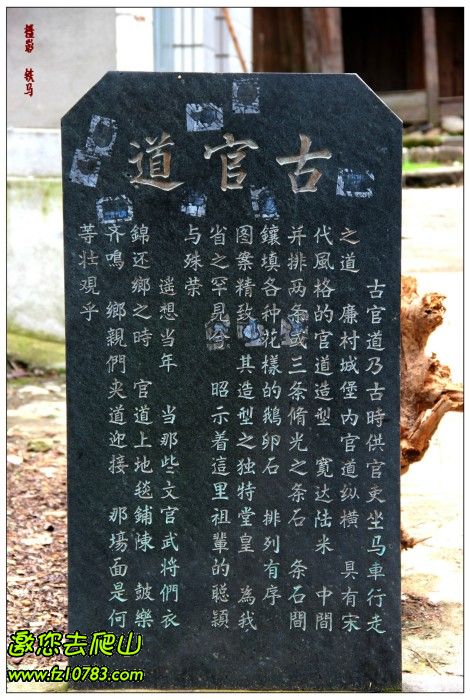 摄影 铁马
古官道
古官道乃古時供官吏坐马車行走
之道 廉村城堡内官道纵横 具有宋
代風格的官道造型 寬达陆米 中間
并排两条或三条脩光之条石 条石間
鑲填各种花樣的鵝卵石 排列有序
图案精致 其造型之独特堂皇 為我
省之罕見 昭示着這里祖輩的聪穎
与殊荣
遥想当年 当那些文官武将們衣
錦还鄉之時 官道上地毯鋪陳 鼓樂
齐鳴 鄉親們夹道迎接 那場面是何
等壮观乎
邀您去爬山
www.fz10783.com